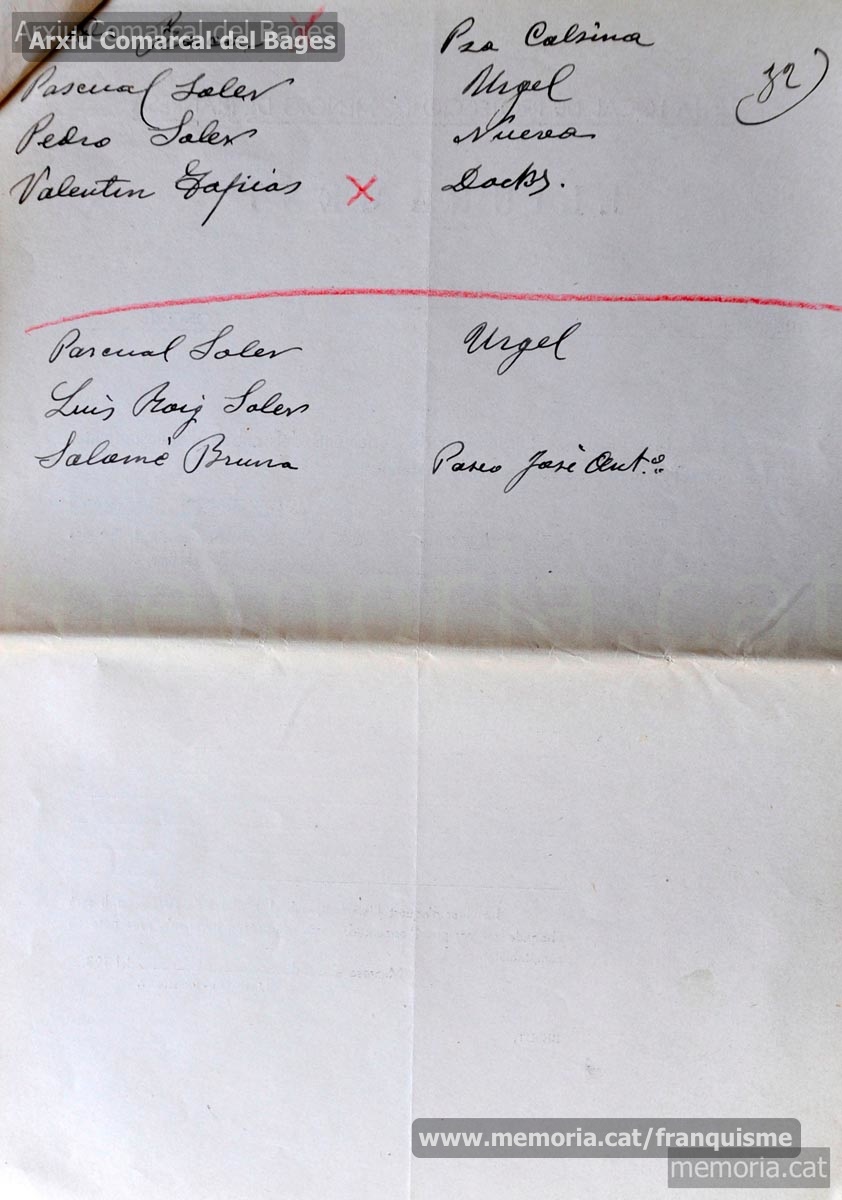 Arxiu Comarcal del Bages
Arxiu Comarcal del Bages
Pza Calsina
Pascual Soler Urgel 32
Pedro Soler Nueva
Valentin Tapias X Docks.
Pascual Soler Urgel
Luis Roig Soler
Salomé Bruna Paseo José Ant.º
www.memoria.cat/franquisme
memoria.cat